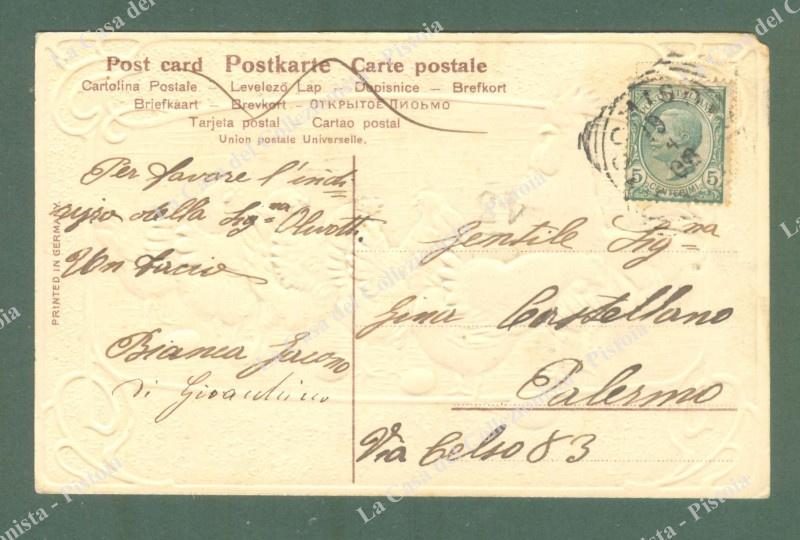 Post card Postkarte Carte postale
Cartolina Postale – Levelező Lap – Dopisnice – Brefkort
Briefkaart – Brevkort – ОТКРЫТОЕ ПИСЬМО
Tarjeta postal Cartao postal
Union postale Universelle.
PRINTED IN GERMANY
Per favore l'indi
rizzo della Sig.na Olivotti
Un bacio
Bianca Iacono
di Gioacchino
5 CENTESIMI 5
Gentile Sig.na
Gina Castellano
Palermo
Via Celso 83
La Casa del Collezionista - Pistoia